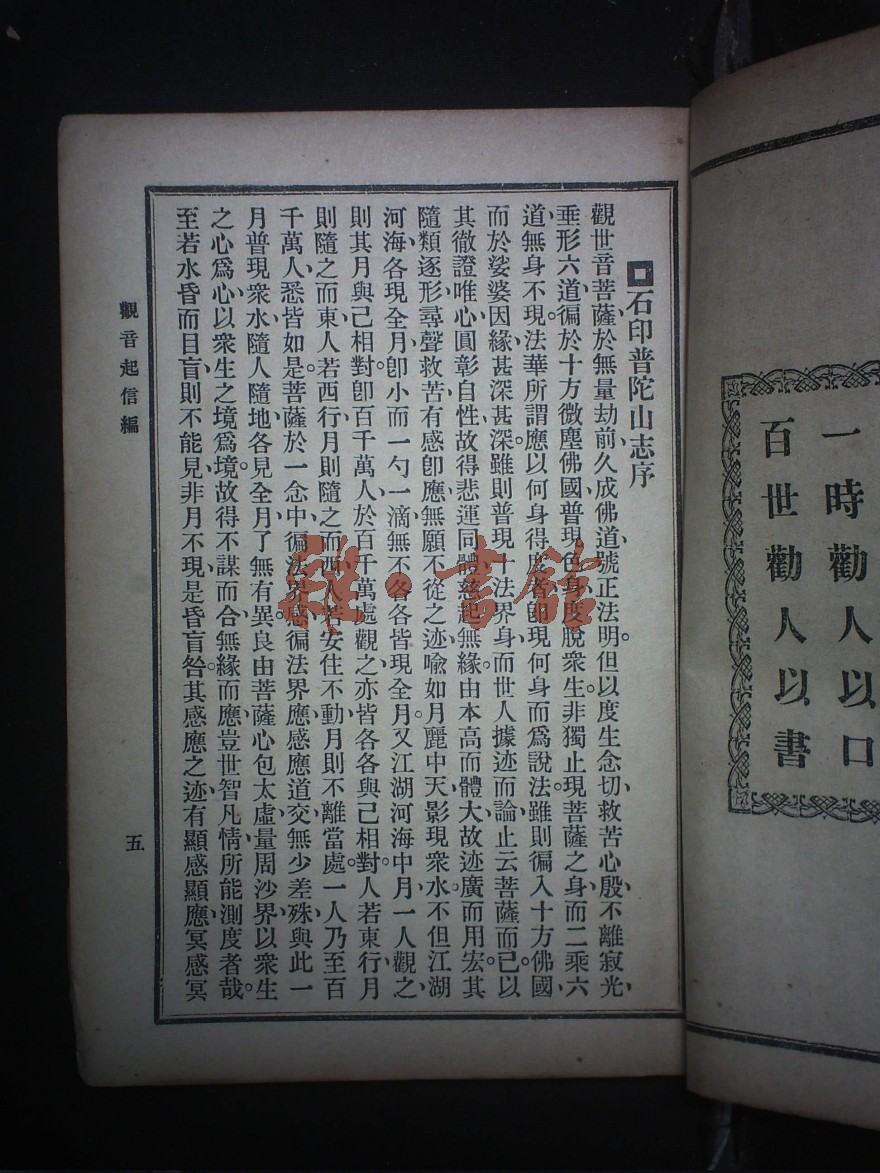 一時勸人以口
百世勸人以書
石印普陀山志序
觀世音菩薩於無量劫前久成佛道號正法明。但以度生念切、救苦心殷、不離寂光、
垂形六道、徧於十方微塵佛國普現色身、度脫衆生。非獨止現菩薩之身、而二乘六
道無身不現。法華所謂應以何身得度者、卽現何身而爲說法。雖則徧入十方佛國、
而於娑婆因緣甚深甚深。雖則普現十法界身、而世人據迹而論、止云菩薩而已。以
其徹證唯心、圓彰自性、故得悲運同體、慈起無緣。由本高而體大、故迹廣而用宏。其
隨類逐形、尋聲救苦、有感卽應、無願不從之迹、喩如月麗中天、影現衆水。不但江湖
河海各現全月、卽小而一勺一滴、無不各各皆現全月。又江湖河海中月、一人觀之、
則其月與己相對。卽百千萬人於百千萬處觀之、亦皆各各與己相對。人若東行、月
則隨之而東、人若西行、月則隨之而西、人若安住不動、月則不離當處。一人乃至百
千萬人、悉皆如是。菩薩於一念中、徧法界感、徧法界應、感應道交、無少差殊、與此一
月普現衆水、隨人隨地各見全月、了無有異。良由菩薩心包太虛、量周沙界、以衆生
之心爲心、以衆生之境爲境。故得不謀而合、無緣而應、豈世智凡情所能測度者哉。
至若水昏而目盲、則不能見、非月不現、是昏盲咎。其感應之迹、有顯感顯應、冥感冥
觀音起信編
五
雜·書館